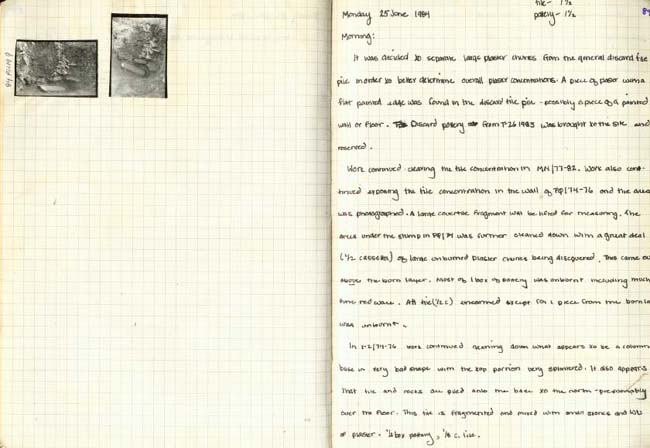 84 FILM 9
tile - 1½
pottery - 1½
84
Monday 25 June 1984
Morning:
It was decided to separate large plaster chunks from the general discard tile
pile in order to better determine overall plaster concentrations. A piece of plaster with a
flat painted edge was found in the discard tile pile - possibly a piece of a painted
wall or floor. Discard pottery from T-26 1983 was brought to the site and
reserved.
Work continued clearing the tile concentration in MN/77-82. Work also cont-
inued exposing the tile concentration in the wall of /74-76 and the area
was photographed. A large covertile fragment will be lifted for measuring. The
area under the stump in was further cleaned down with a great deal
(1½ cassetta) of large unburned plaster chunks being discovered. This came out
above the burn layer. Most of 1 box of pottery was unburnt including much
fine red ware. All tile (½ c) examined except for 1 piece from the burn la
was unburnt.
In 1-2/74-76 work continued cleaning down what appears to be a column
base in very bad shape with the top portion very splintered. It also appears
that tile and rocks are piled onto the base to the north - presumably
over the floor. This tile is fragmented and mixed with small stones and bits
of plaster. box pottery, c. tile.